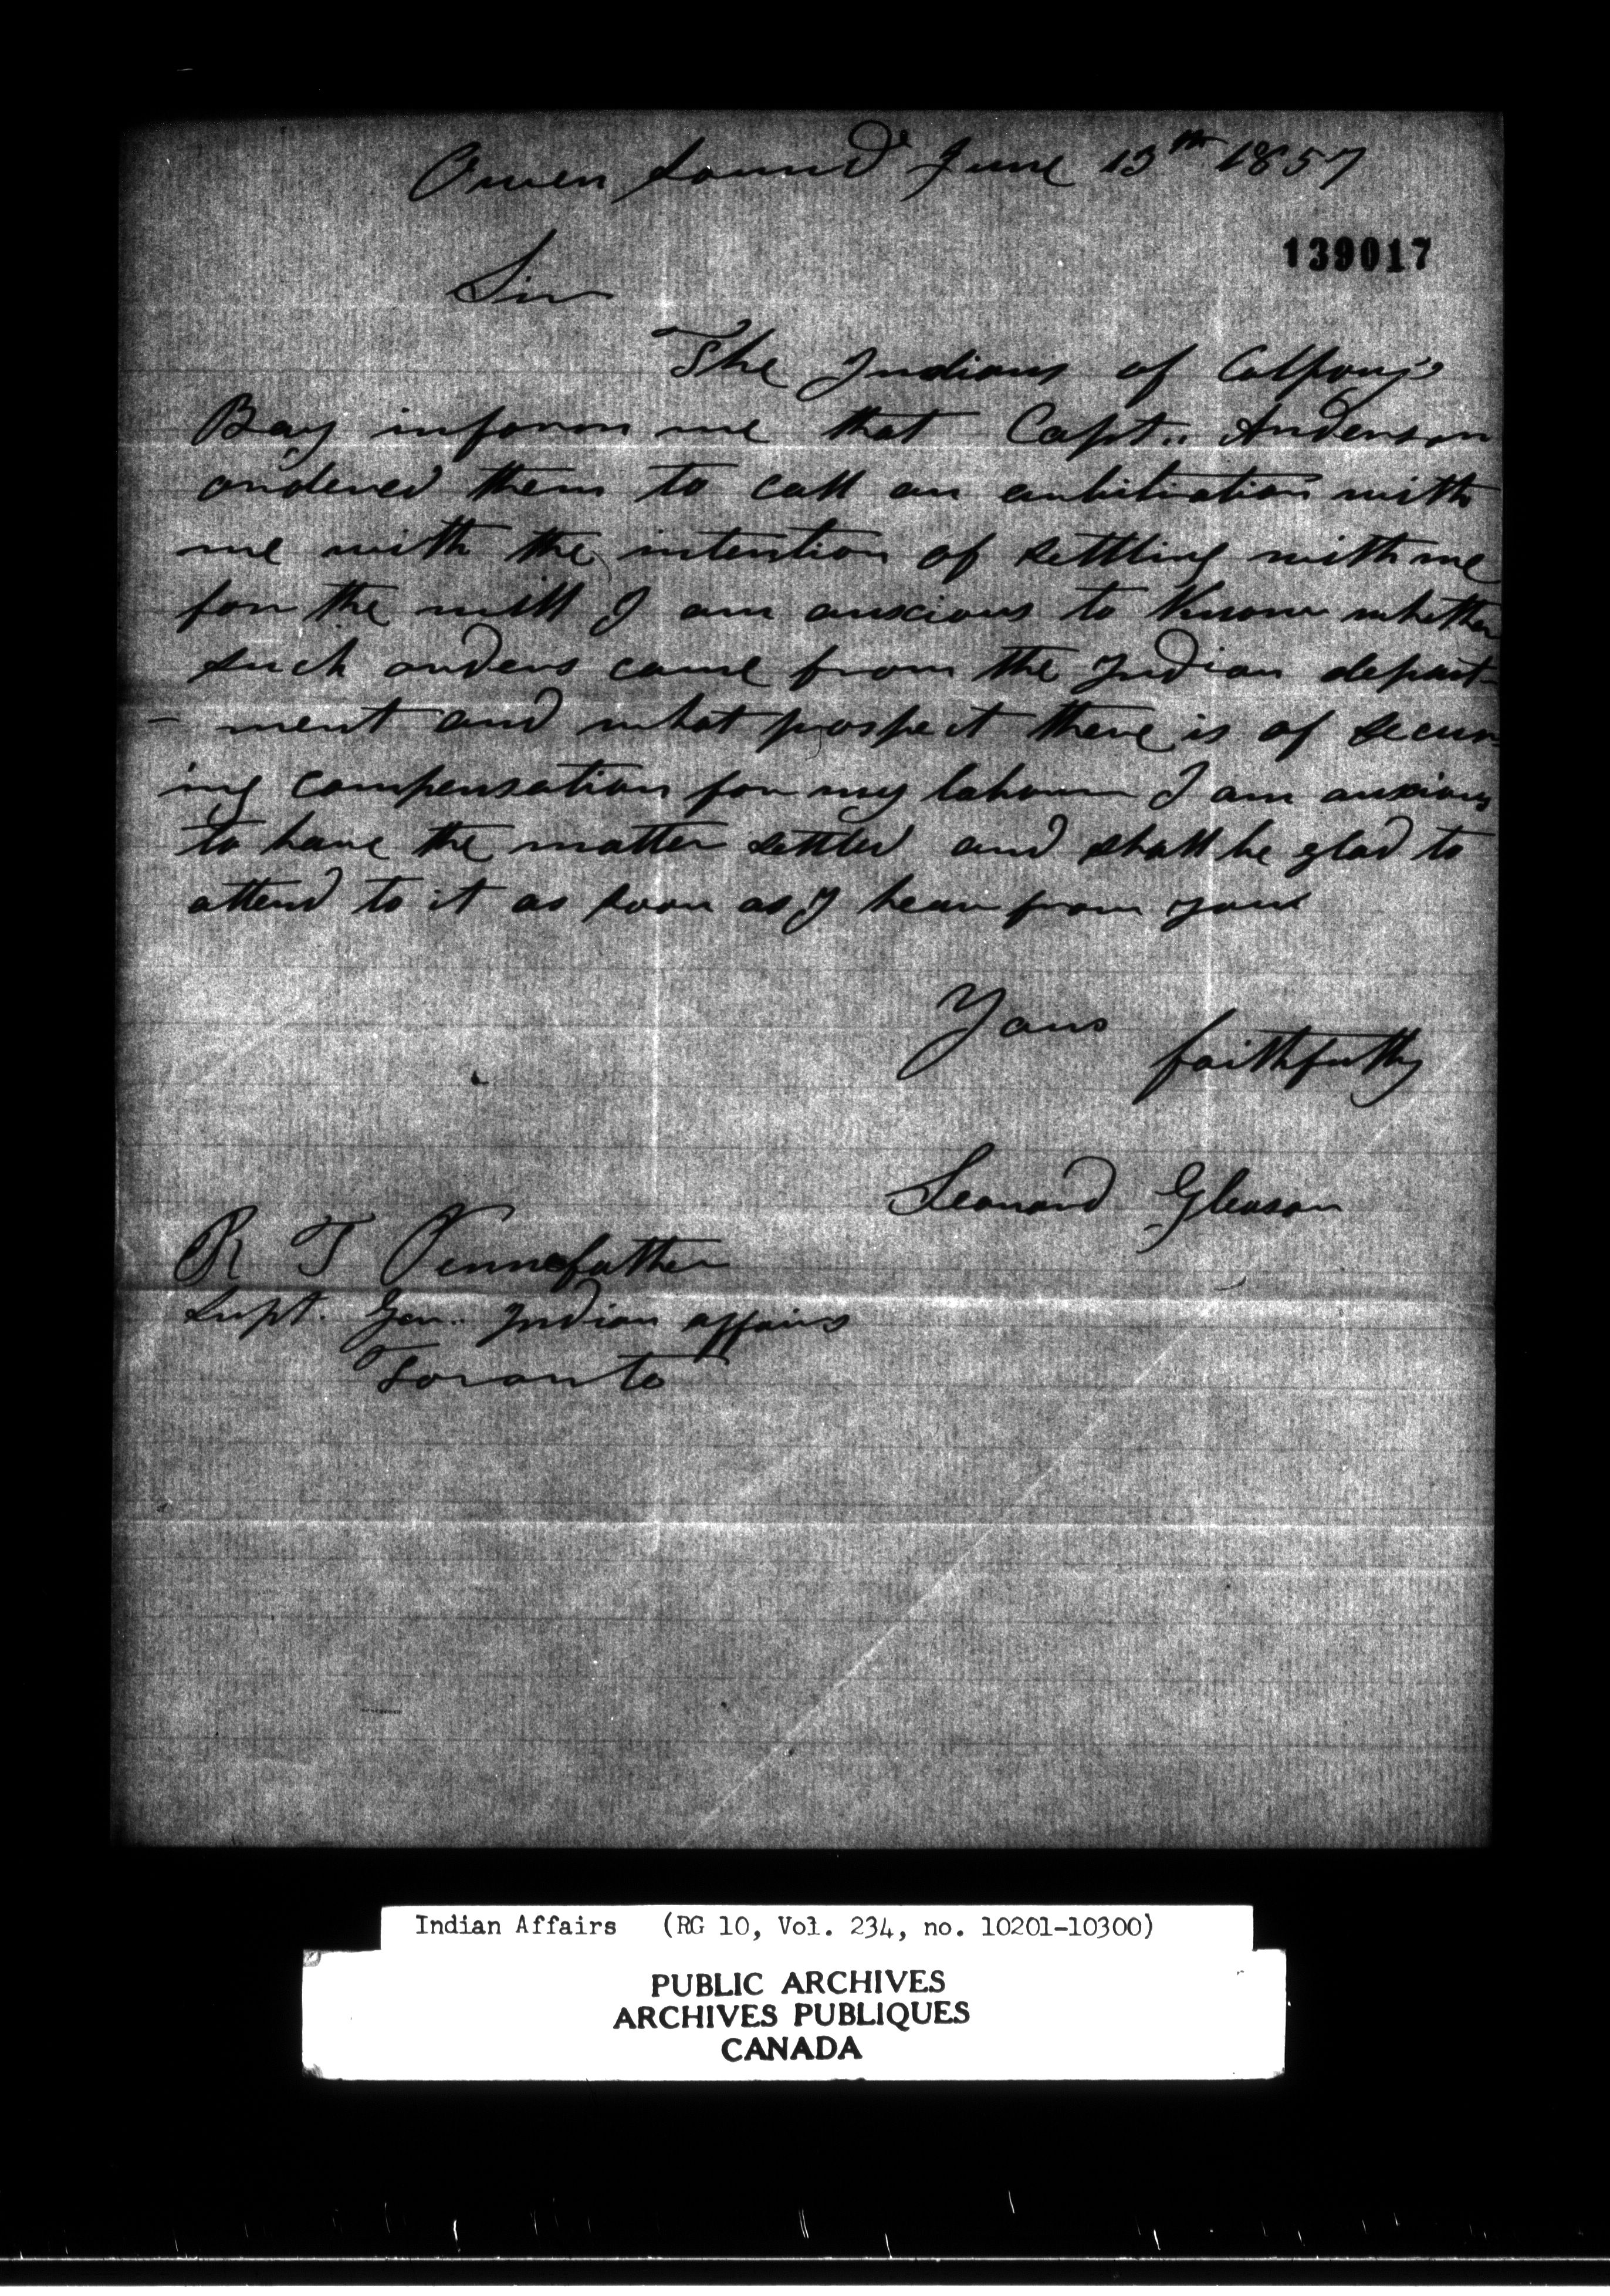 Owen Sound June 13th 1857
139017
Sir
The Indians of Colpoy's
Bay inform me that Capt.. Anderson
ordered them to call an arbitration with
me with the intention of settling with me
for the mill I am anscious to know whether
such orders came from the Indian depart-
- ment and what prospect there is of secur-
ing compensation for my labour I am anxious
to have the matter settled and shall be glad to
attend to it as soon as I hear from you
Yours
faithfully
Leonard Gleason
R T Pennefather
Supt. Gen.. Indian affairs
Toronto
Indian Affairs (RG 10, Vol. 234, no. 10201-10300)
PUBLIC ARCHIVES
ARCHIVES PUBLIQUES
CANADA